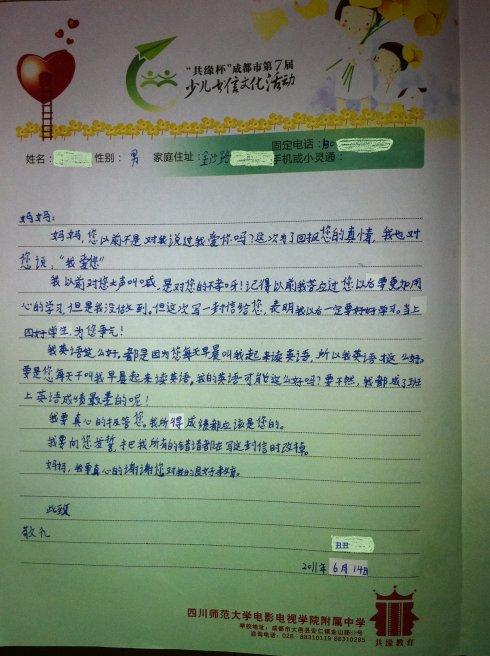 “共缘杯”成都市第7届
少儿书信文化活动
固定电话：
姓名： 性别：男 家庭住址： 手机或小灵通：
妈妈：
妈妈，您以前不是对我说过我爱你吗？这次为了回报您的真情，我也对
您说，“我爱您”
我以前对您大声叫喊，是对您的不孝呀！记得以前我答应过您以后要更加用
心的学习，但是我没估到。但这次写一封信给您，表明我以后一定要好好学习。当上
四好学生为您争气！
我英语这么好，都是因为您每天早晨叫我起来读英语，所以我英语才这么好。
要是您每天不叫我早晨起来读英语，我的英语可能这么好吗？要不然，我都成了班
上英语成绩最差的呢！
我要真心的报答您，我所得成绩都应该是您的。
我要向您发誓，把我所有的错误都在写这封信时改掉。
妈妈，我要真心的谢谢您对我的良好教育。
此致
敬礼
丑丑
2011年6月14日
四川师范大学电影电视学院附属中学
学校地址：成都市大邑县安仁镇金山路
咨询电话：028-88310119 88310285
共缘教育